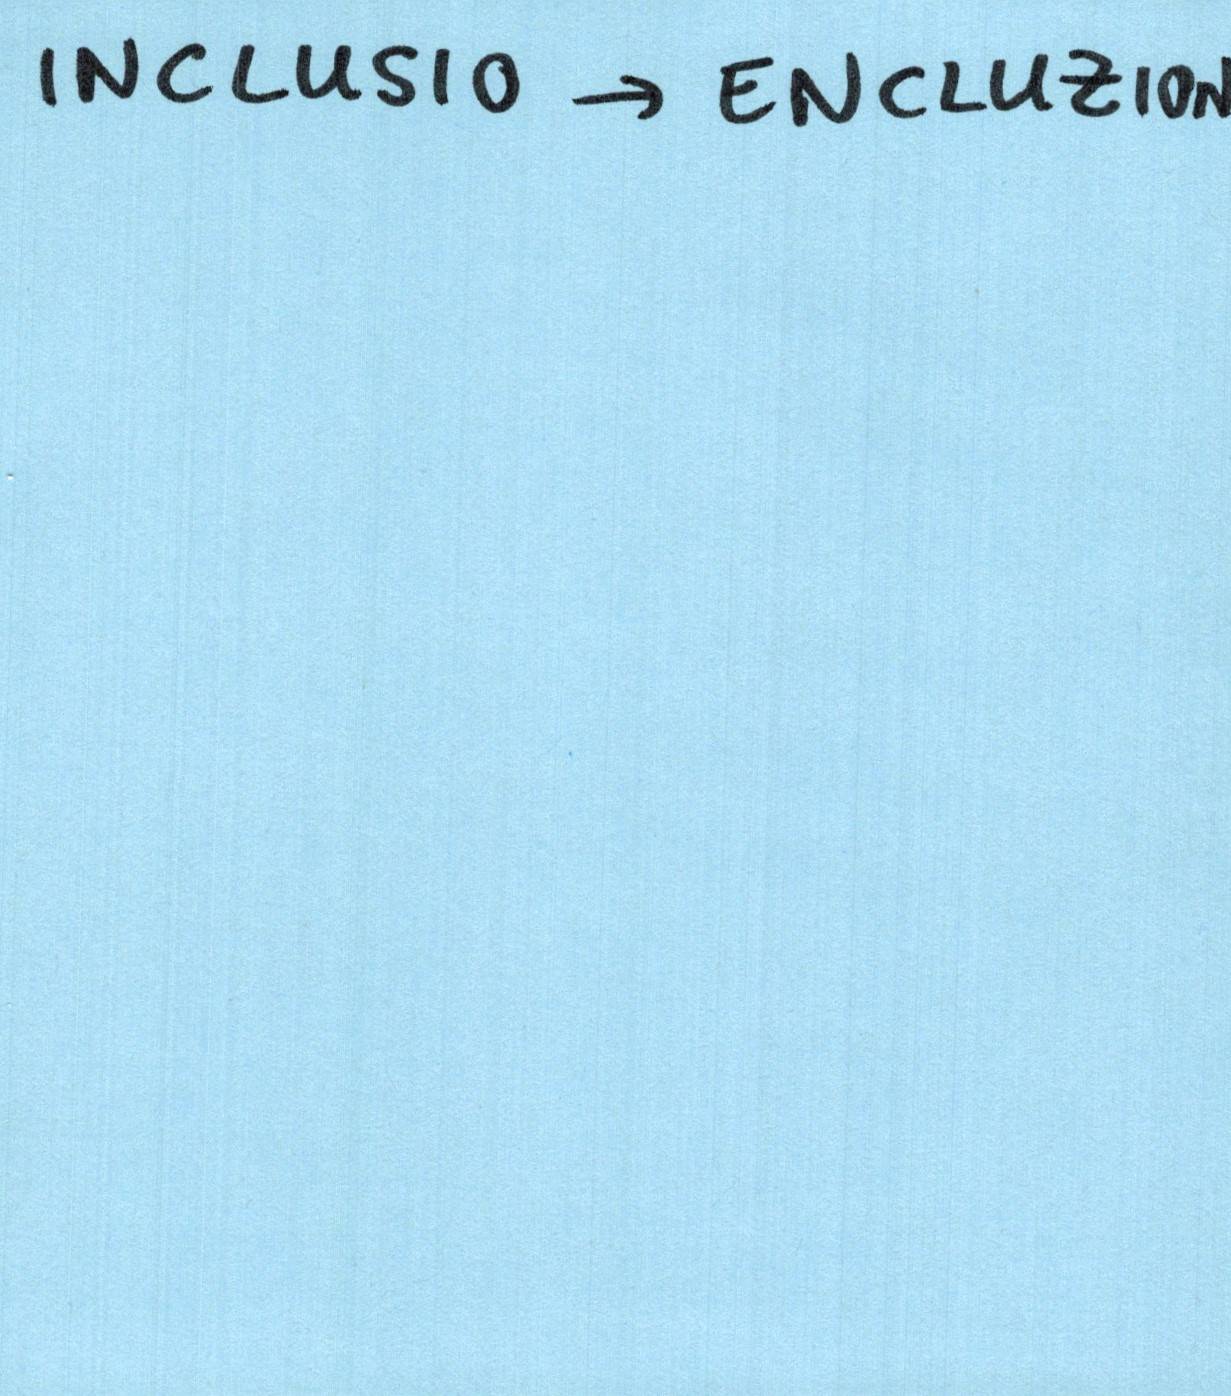 INCLUSIO → ENCLUZION